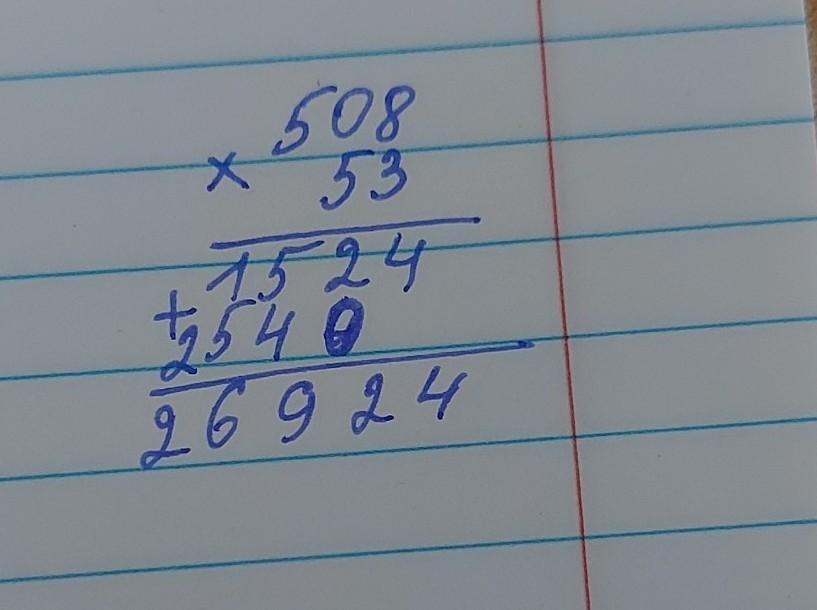 508
× 53
1524
+
2540
26924